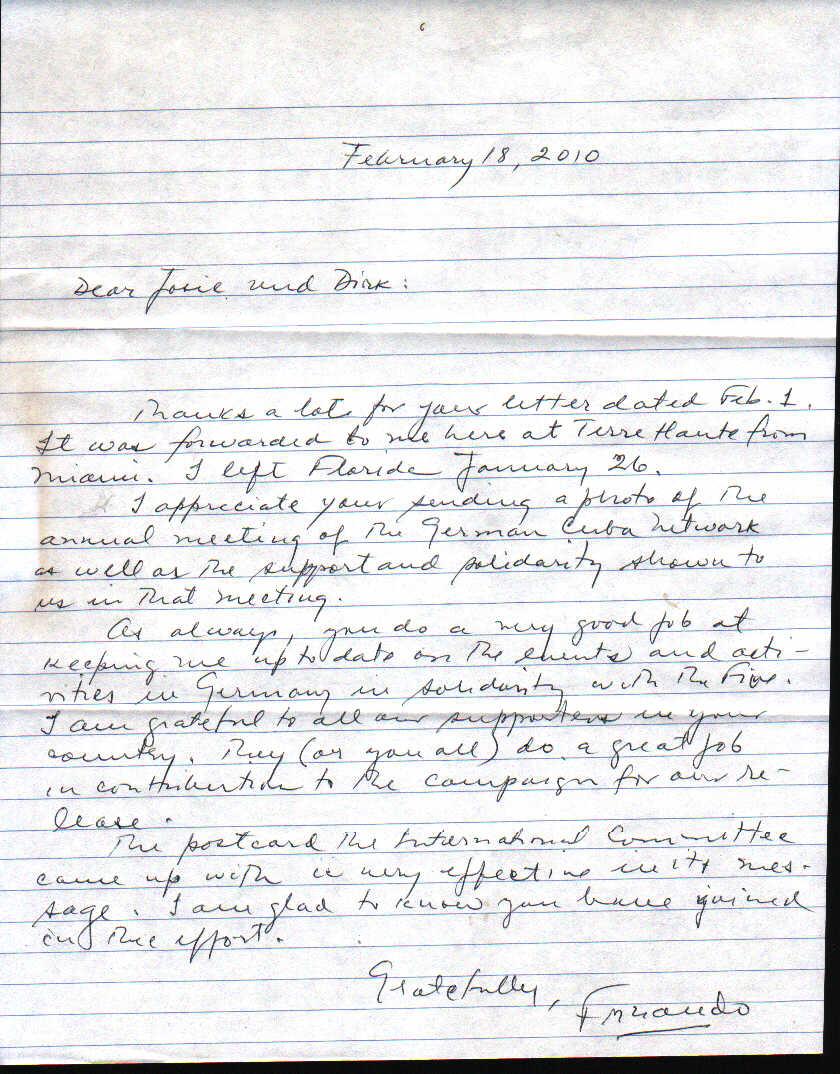 February 18, 2010
Dear Josie und Dirk:
Thanks a lot for your letter dated Feb. 1.
It was forwarded to me here at Terre Haute from
Miami. I left Florida January 26.
I appreciate your sending a photo of the
annual meeting of the German Cuba Network
as well as the support and solidarity shown to
us in that meeting.
As always, you do a very good job at
keeping me up to date on the events and acti-
vities in Germany in solidarity with the Five.
I am grateful to all our supporters in your
country. They (or you all) do a great job
in contribution to the campaign for our re-
lease.
The postcard the International Committee
came up with is very effective in its mes-
sage. I am glad to know you have joined
in the effort.
Gratefully,
Fernando